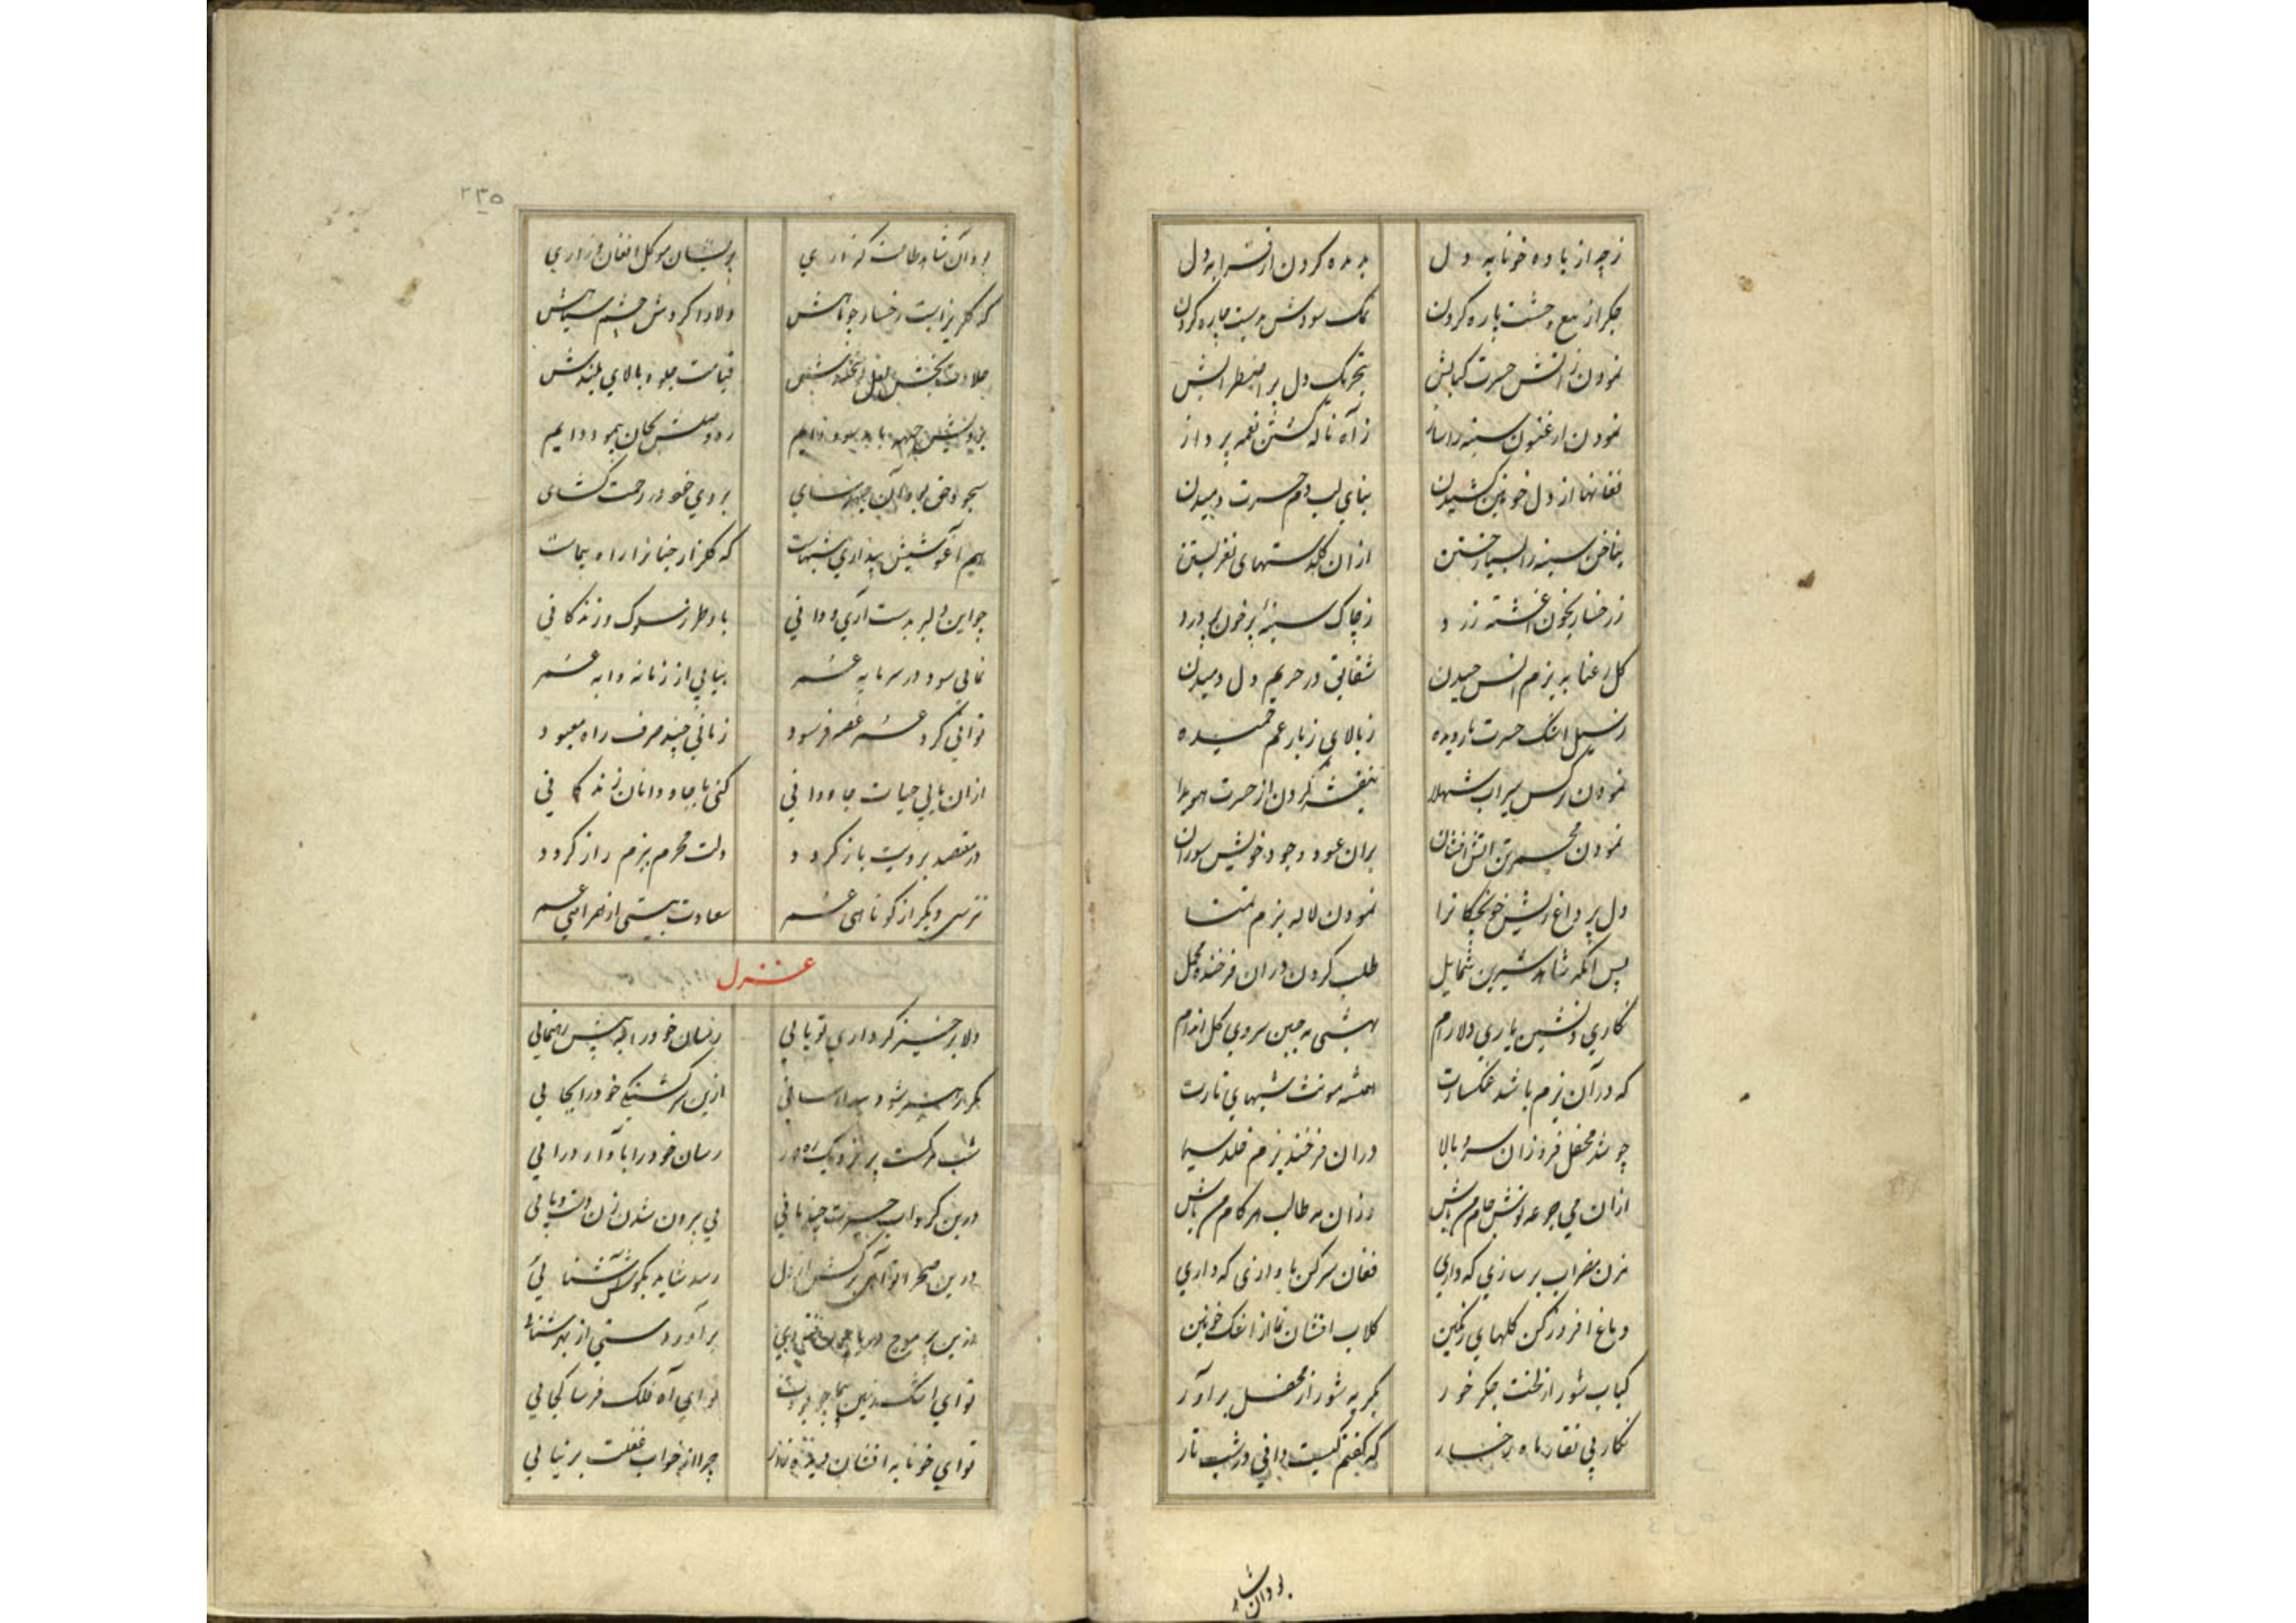 ز چه از باده خونابه دل بدیده کردن از قرابه دل
جکر از تیغ وحشت پاره کردن نمک سودش بدست چاره کردن
نمودن ز اتش حسرت کبابش بتحریک دل پر اضطرابش
نمودن ارغنون سینه را ساز ز آه ناله کشتن نغمه پرداز
فغانها از دل خونین کشیدن بنای لب دم حسرت دمیدن
بناخن سینه را بسیار خستن ازان کلدستهای نغز بستن
ز رخسار بخون اغشته زرد ز چاک سینهٔ پر خون پر درد
کل رعنا به بزم انس چیدن شقایق در حریم دل دمیدن
ز سیل اشک حسرت بار دیده ز بالای ز بار غم خمیده
نمودن نرکس سیراب شهلا بنفشه کردن از حسرت هویدا
نمودن مجمر تن اتش افشان بران عود وجود خویش سوزان
دل پر داغ ریش خونچکانرا نمودن لاله بزم تمنا
پس آنکه شاهد شیرین شمایل طلب کردن دران فرخنده محفل
نکاری دلنشین یاری دلارام بهشتی مه جبین سروی کل اندام
که در آن بزم باشد غمکسارت همیشه مونث شبهای تارت
چو شد محفل فروزان سرو بالا دران فرخنده بزم خلد سیما
ازان می جرعه نوش جام میباش وزان مه طالب هر کام میباش
بزن مضراب بر سازی که داری فغان سر کن باوازی که داری
دماغ افروز کن کلهای رنکین کلاب افشان نما از اشک خونین
کباب شور از لخت جکر خور بکریه شور از محفل برآور
نکار بی نقاب ماه رخسار که کفتم کیست دانی در شب تار
بود آن شاهد
۲۳۵
بود آن شاهد طاعت کذاری پریشان مو کل افغان و زاری
که کلریز است رخسار چو ماهش دلارا کردش چشم سیاهش
حلاوت بخش لعل نوشخندش قیامت جلوه بالای بلندش
جبهه باید سود دایم ره وصلش بجان پیمود دایم
سجود حق بود آن جبهه سای بروی خود در رحمت کشای
هم آغوشیش بیداری شبهاست که کلزار جنانرا راه پیماست
چو این دلبر بدست آری و دانی باو طرز سلوک و زندکانی
نمایی سود در سرمایه عمر بیابی از زمانه دایه عمر
توانی کرد عمر غصه فرسود زمانی چند صرف راه معبود
ازان یابی حیات جاودانی کنی با جاودانان زندکانی
در مقصد برویت باز کردد دلت محرم بزم راز کردد
نترسی دیکر از کوتاهی عمر سعادت بینی از همراهی عمر
غزل
دلا برخیز کر داری تو پایی رسان خود را به پیش رهنمایی
ازین سرکشتکی خود را بجایی
رسان خود را باواز درایی
درین کرداب حیرت چند مانی پی برون شدن زن دست و پایی
درین صحرا تو آهی برکش از دل رسد شاید بکوش آشنایی
برآور دستی از بهر شنایی
تو ای آه فلک فرسا کجایی
تو ای خونابه افشان چرا از خواب غفلت بر نیایی